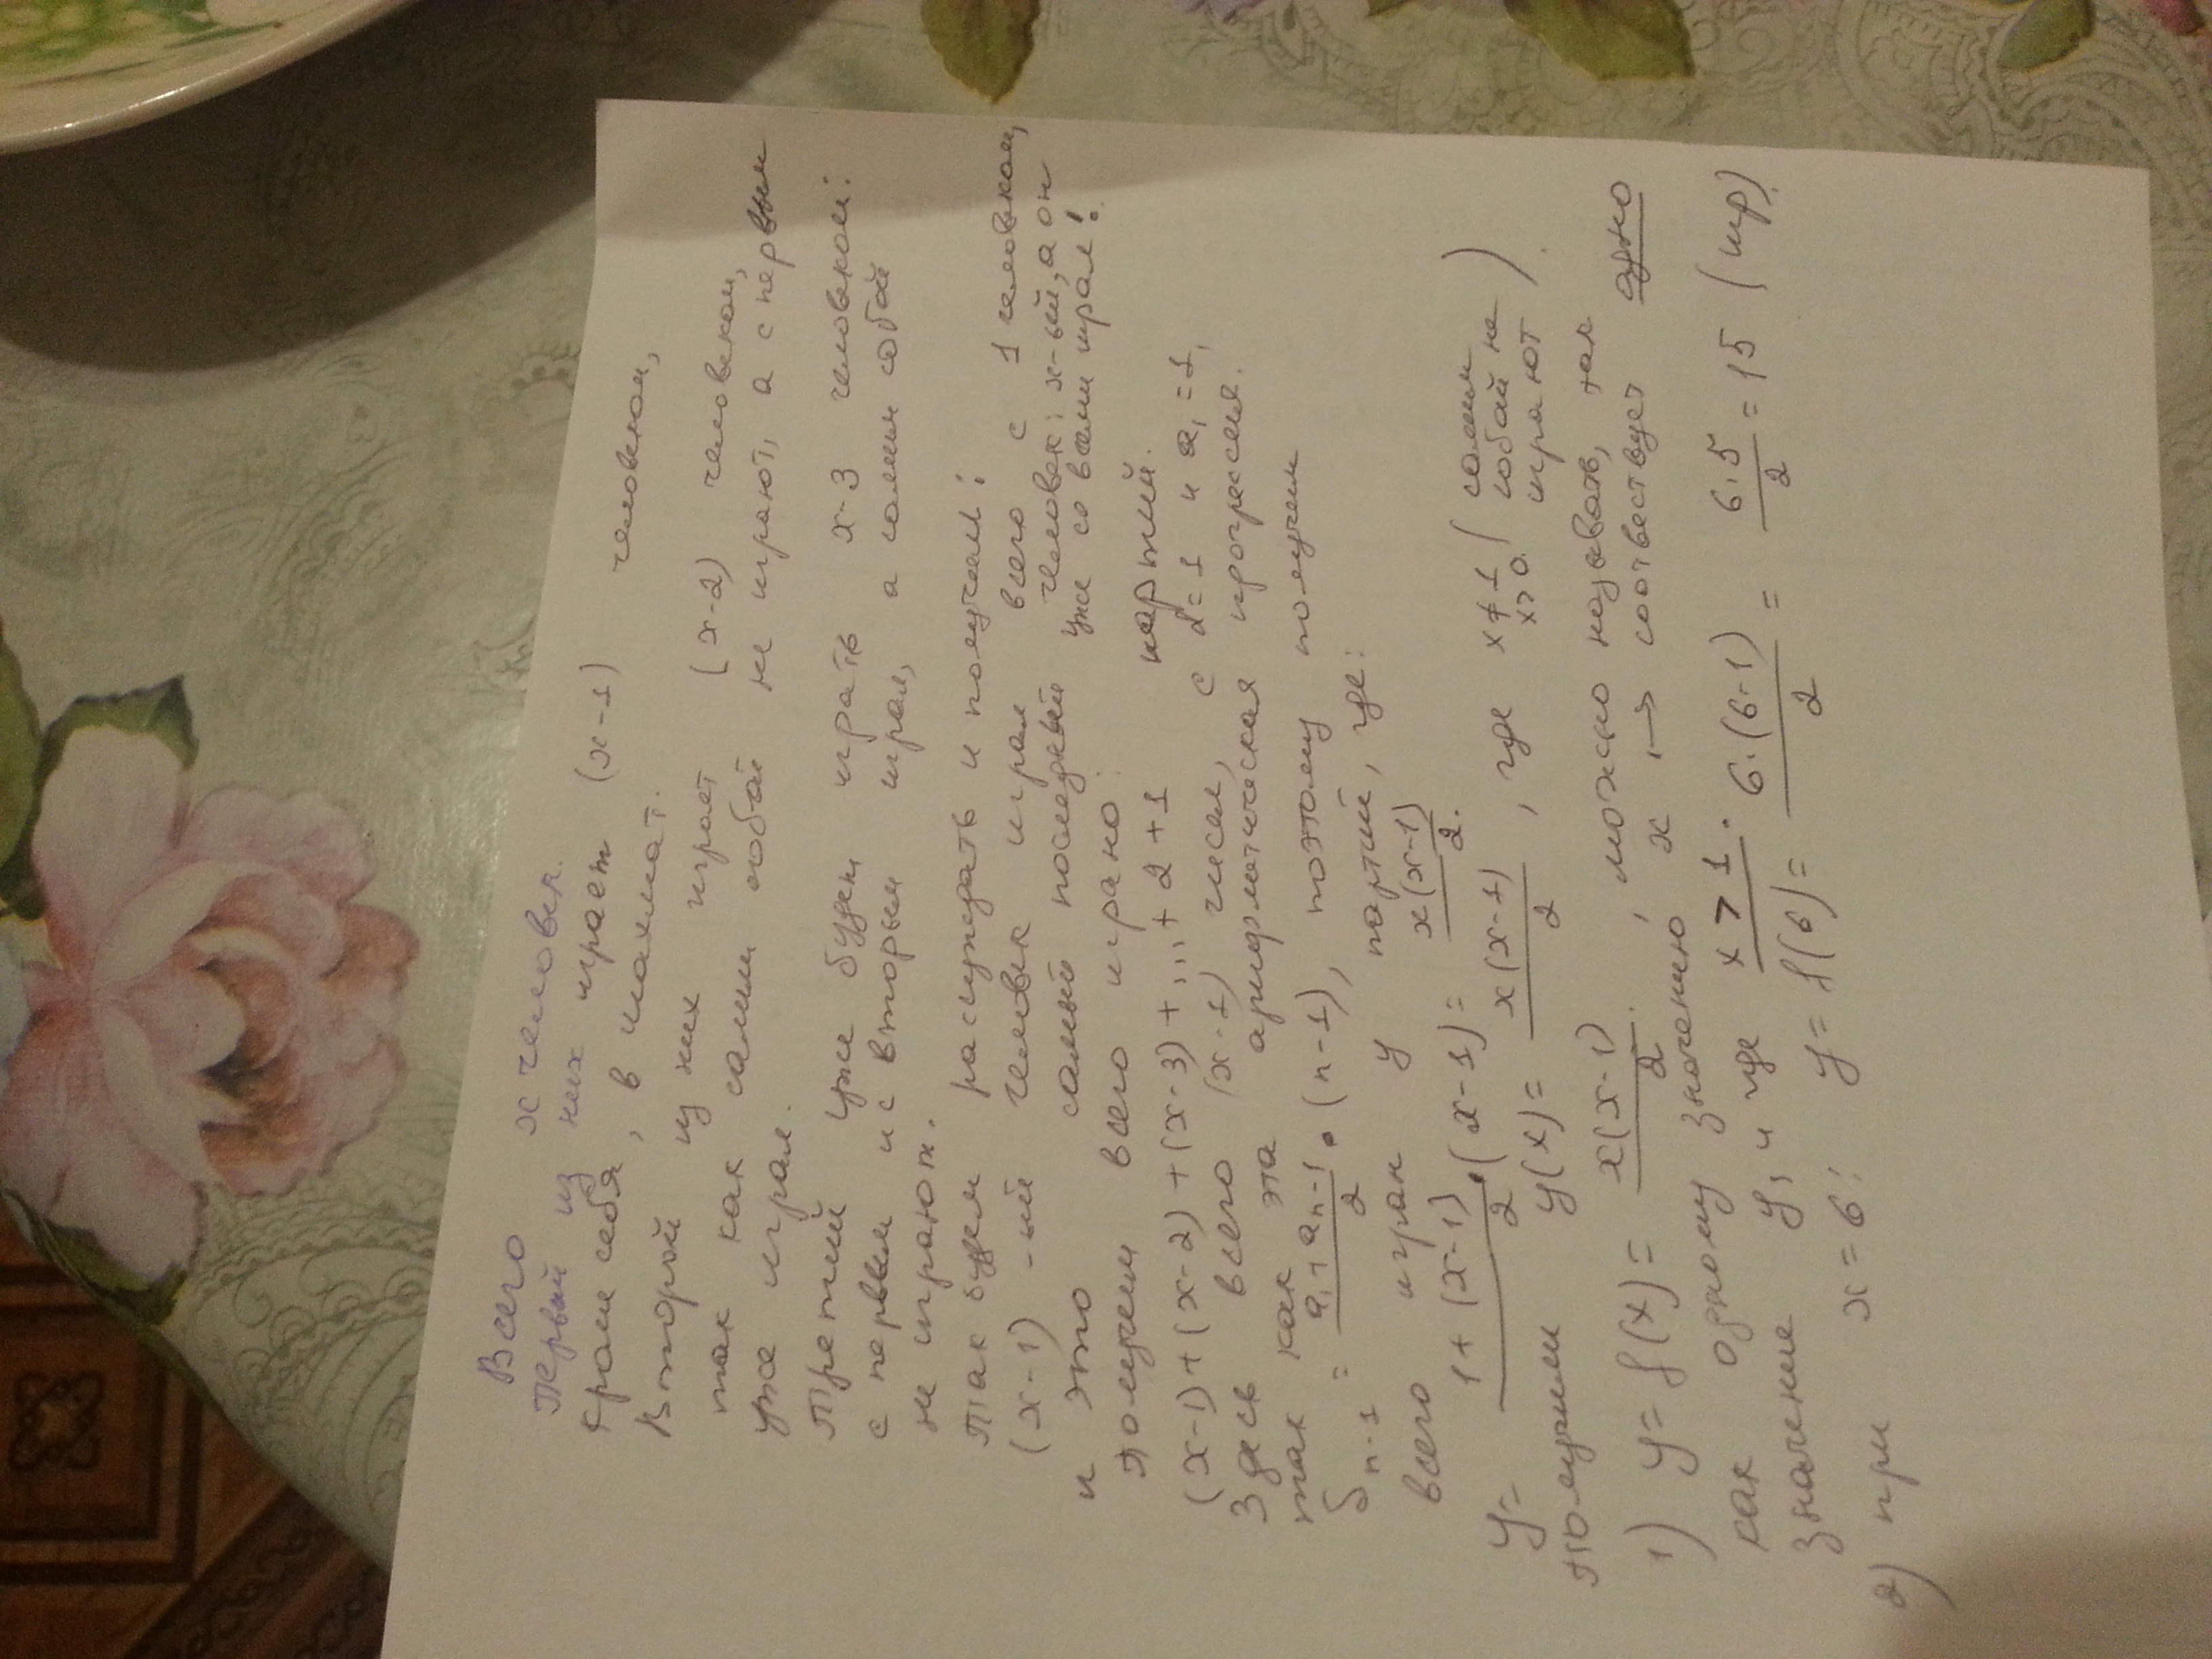 Всего х человек.
Первый из них играет (х-1) человеком,
кроме себя, в шахмат.
Второй из них играет (х-2) человеком,
так как сами собой не играют, а с первым
уже играл.
Третий уже будем играть х-3 человеком:
с первым и с вторым играл, а самим собой
не играют.
Так будем рассуждать и получаем:
(х-1)-ий человек играл всего с 1 человеком,
и это самый последный человек: х-ый, а он
уже со всеми играл!
Получаем всего играно:
(х-1)+(х-2)+(х-3)+...+2+1 партий.
Здесь всего (х-1) чисел, с d=1 и a₁=1,
так как эта арифметическая прогрессия.
Sn-1 = a₁+an-1/2 • (n-1), поэтому получаем
всего игран у партий, где:
y= 1+(x-1)/2 •(x-1)= x(x-1)/2.
Получили y(x)= x(x-1)/2, где x≠1 x>0. (самим собой не играют).
1) y=f(x)= x(x-1)/2. , можно назвать, так
как одному значению х → соотвествует одно
значение у, и где x>1.
2) при x=6: y=f(6)= 6·(6-1)/2 = 6·5/2 =15 (игр).